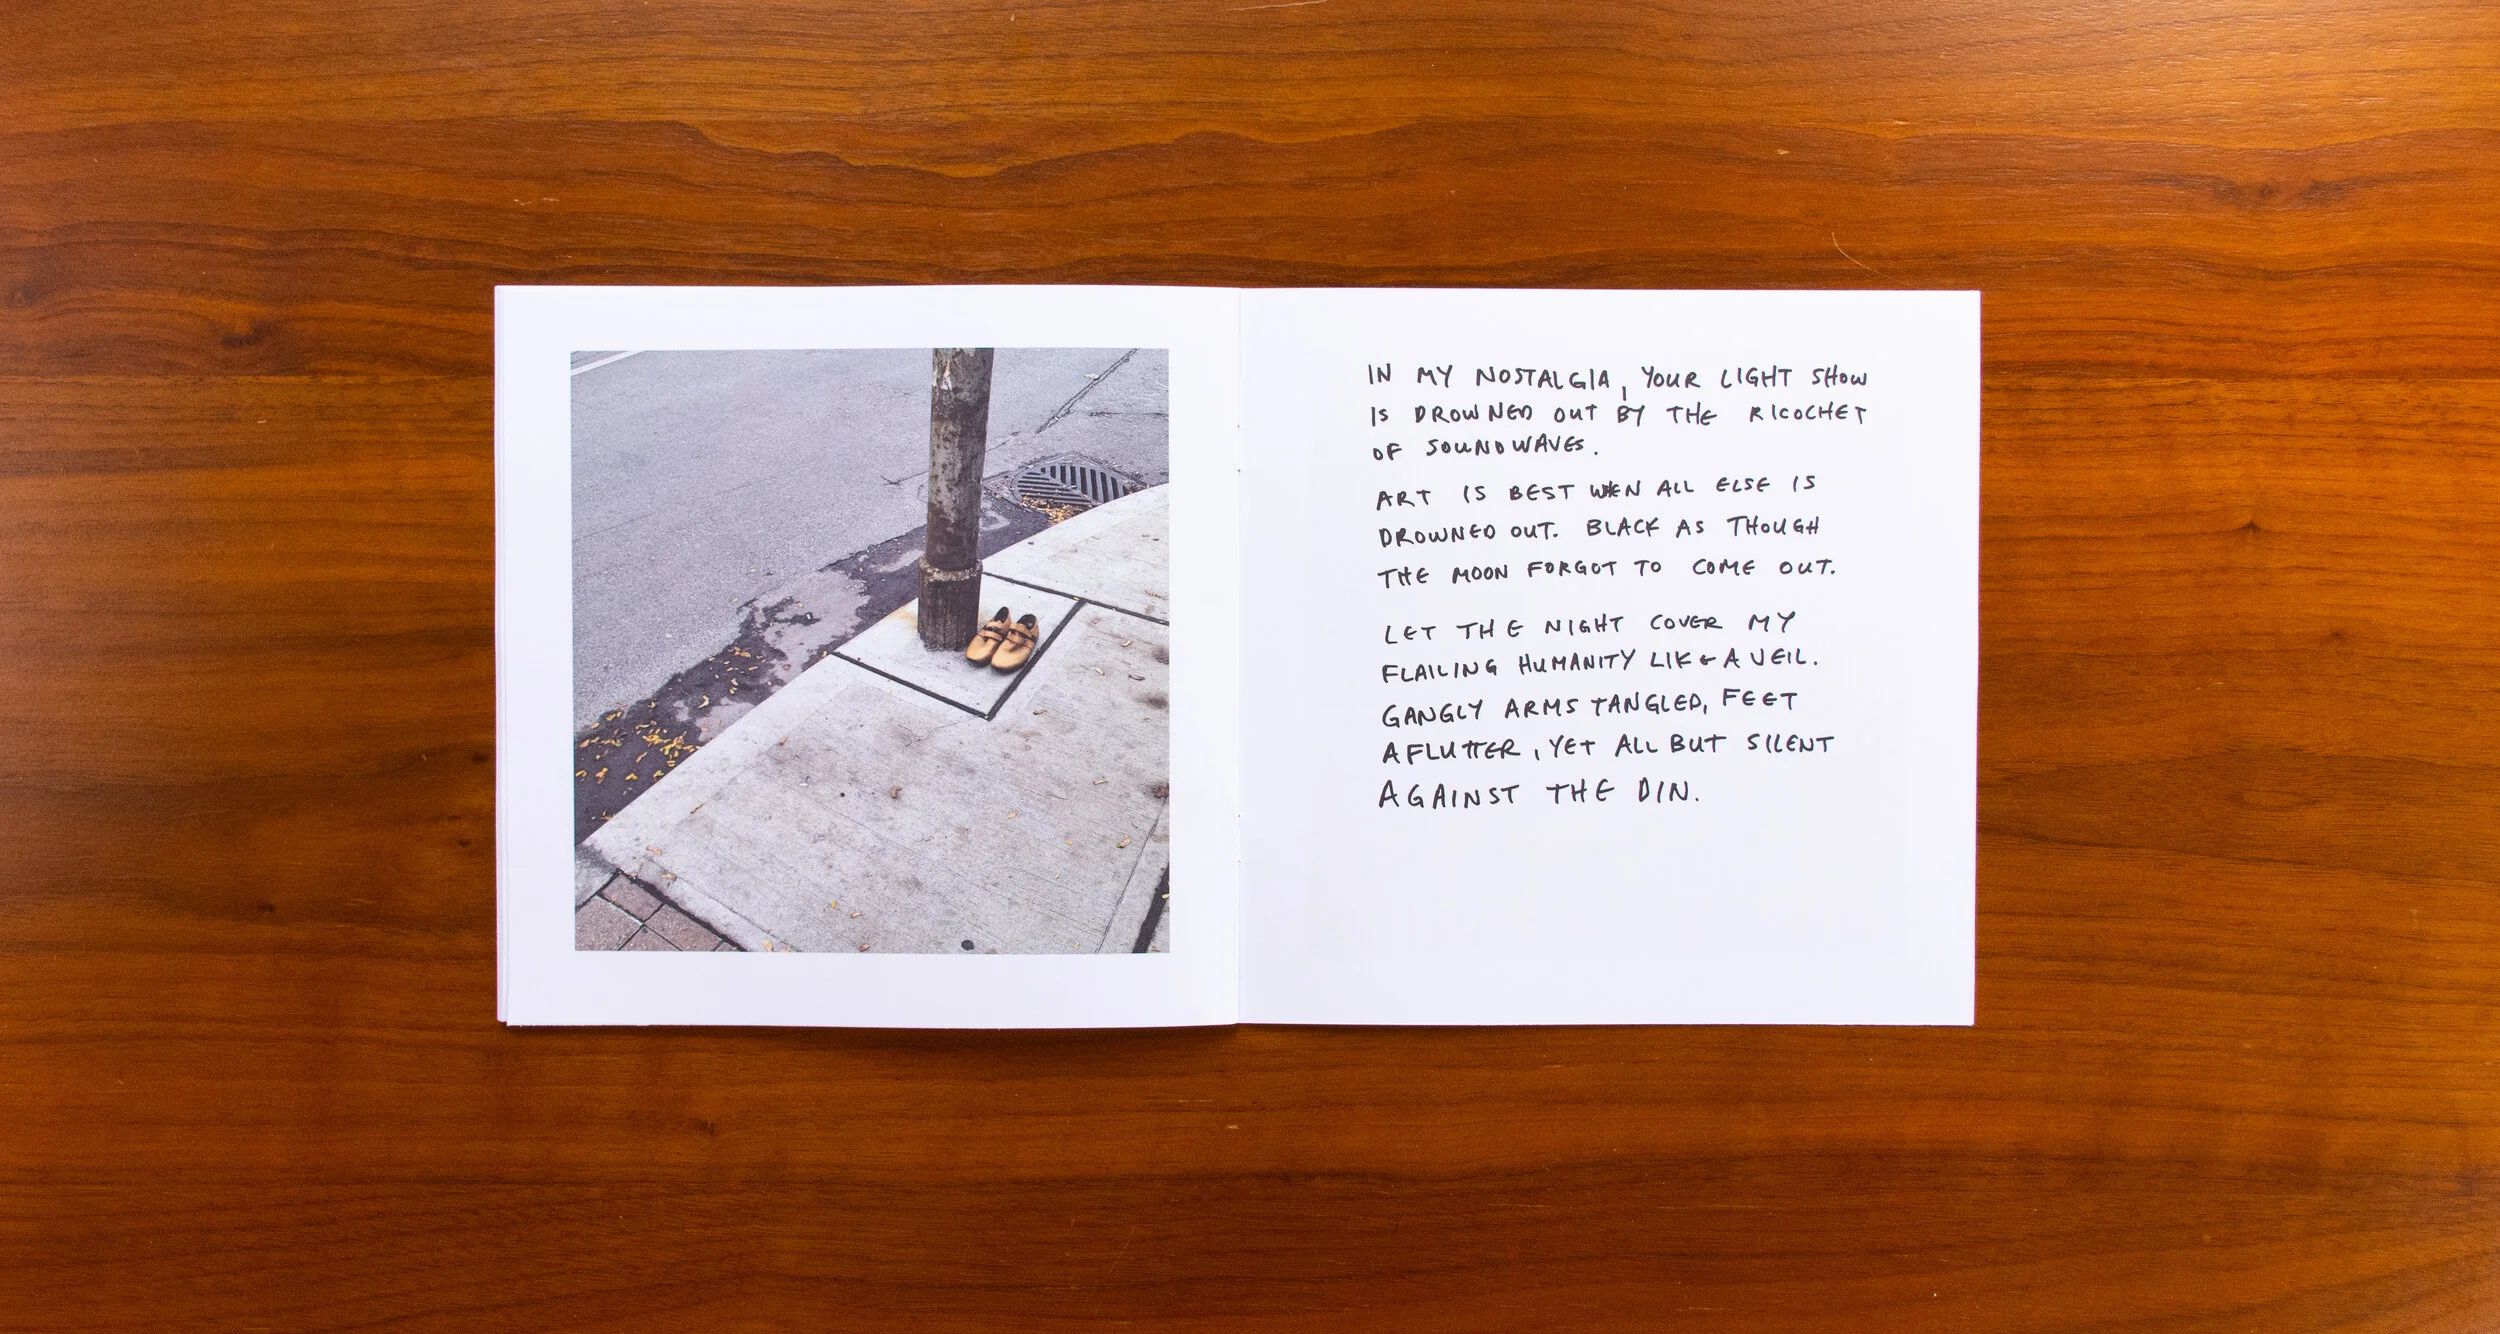 IN MY NOSTALGIA, YOUR LIGHT SHOW
IS DROWNED OUT BY THE RICOCHET
OF SOUNDWAVES.
ART IS BEST WHEN ALL ELSE IS
DROWNED OUT. BLACK AS THOUGH
THE MOON FORGOT TO COME OUT.
LET THE NIGHT COVER MY
FLAILING HUMANITY LIKE A VEIL.
GANGLY ARMS TANGLED, FEET
AFLUTTER, YET ALL BUT SILENT
AGAINST THE DIN.